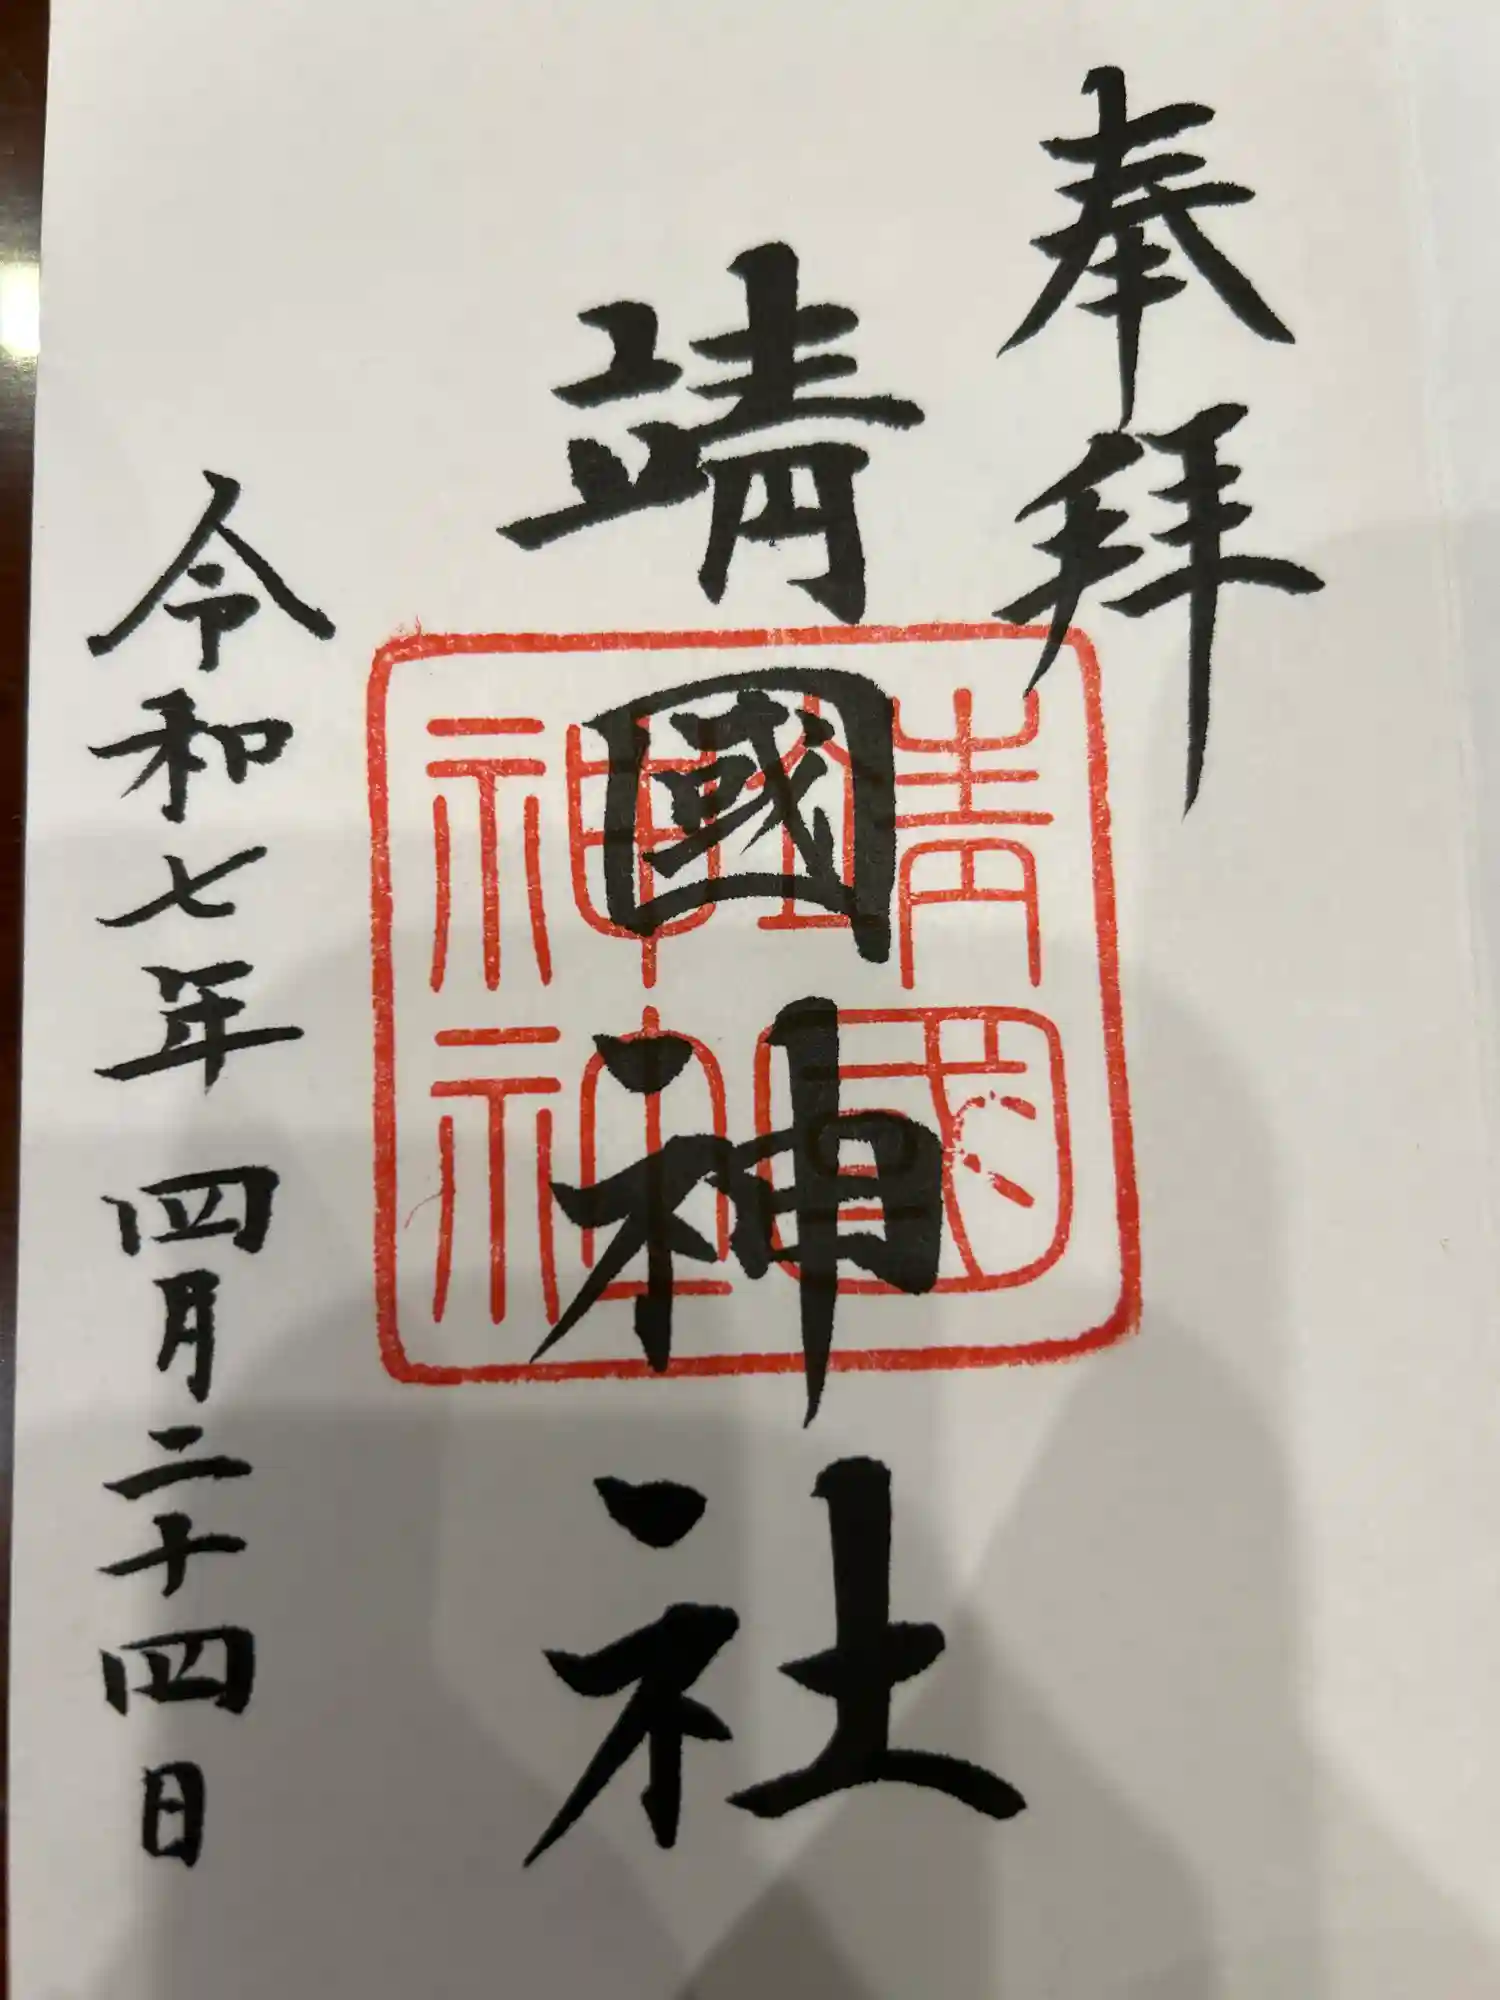 奉拝
靖國神社
靖國
神社
令和七年 四月二十四日